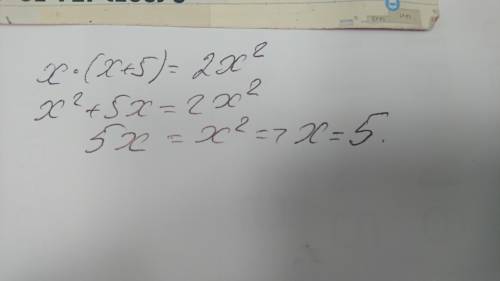 x·(x+5)= 2x²
x²+5x=2x²
5x = x² => x=5.